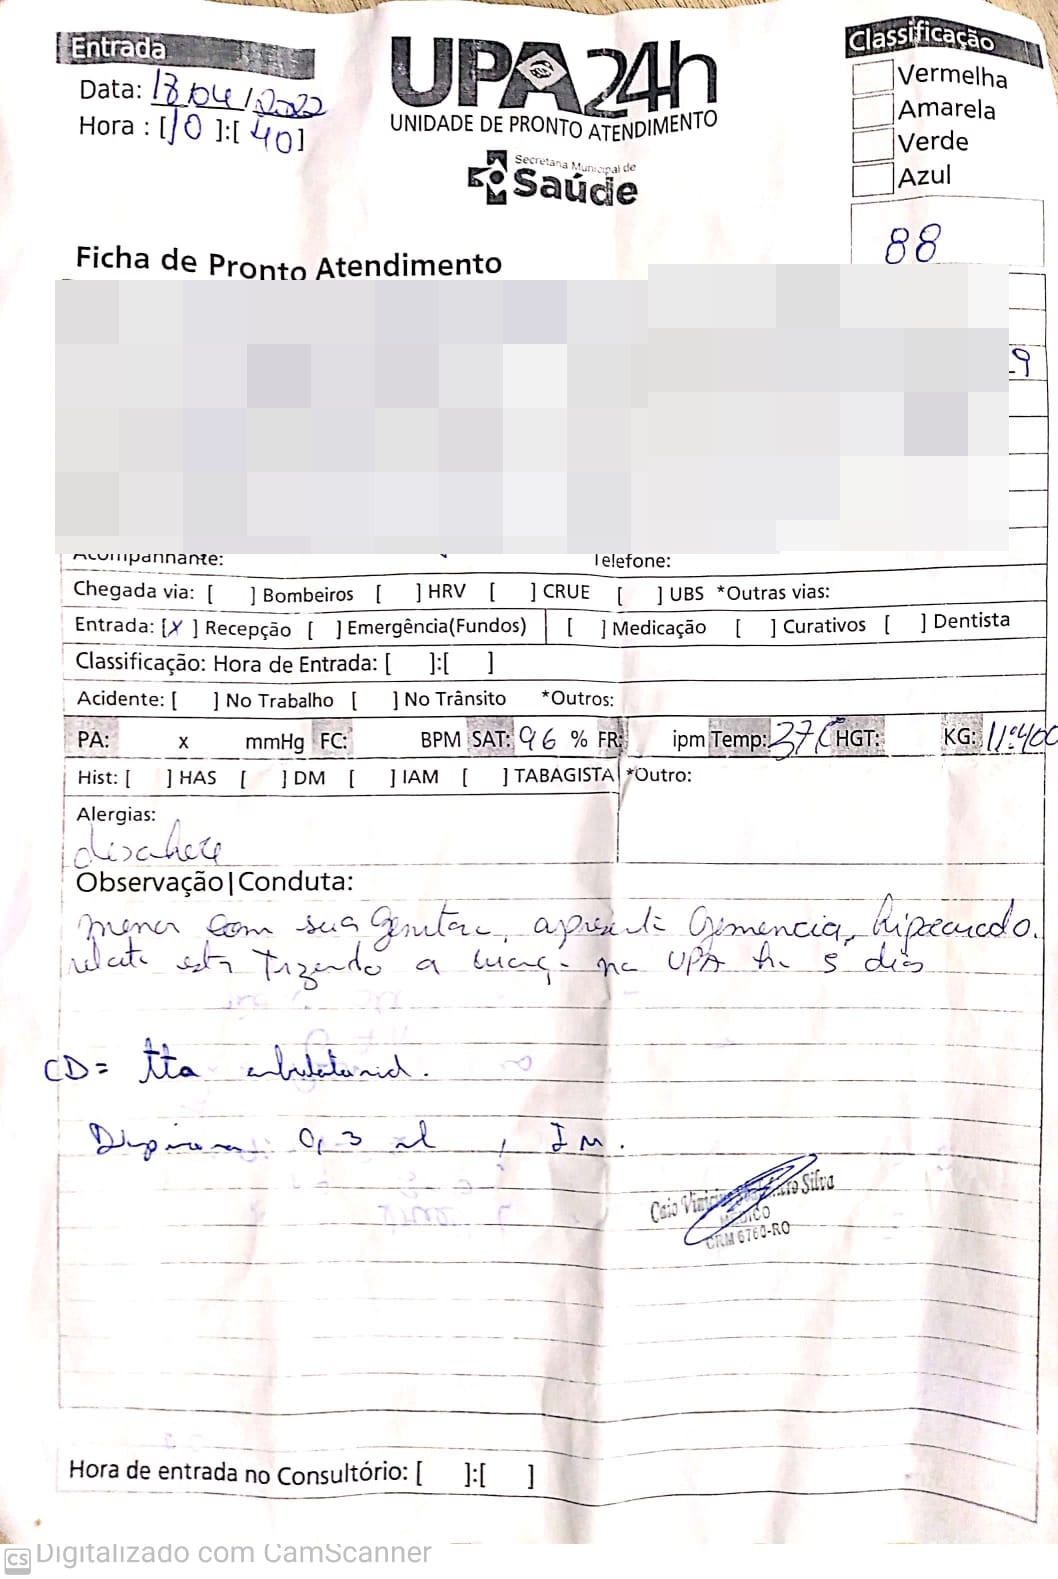 Entrada
Data: 18/04/2022
Hora : [10 ]:[ 40]
UPA 24h
UNIDADE DE PRONTO ATENDIMENTO
Secretaria Municipal de
Saúde
Classificação
Vermelha
Amarela
Verde
Azul
88
Ficha de Pronto Atendimento
9
Acompanhante: Telefone:
Chegada via: [ ] Bombeiros [ ] HRV [ ] CRUE [ ] UBS *Outras vias:
Entrada: [X ] Recepção [ ] Emergência(Fundos) [ ] Medicação [ ] Curativos [ ] Dentista
Classificação: Hora de Entrada: [ ]:[ ]
Acidente: [ ] No Trabalho [ ] No Trânsito *Outros:
PA: x mmHg FC: BPM SAT: 96 % FR: ipm Temp: 37 HGT: KG: 11:400
Hist: [ ] HAS [ ] DM [ ] IAM [ ] TABAGISTA *Outro:
Alergias:
Observação|Conduta:
menor com sua Genitora, apresenta Gemencia,
relata está Trazendo a criança na UPA há 5 dias
CD= tto ambulatorial.
Dipirona 0,3 ml , IM.
Caio Silva
MÉDICO
CRM 6760-RO
Hora de entrada no Consultório: [ ]:[ ]
CS Digitalizado com CamScanner